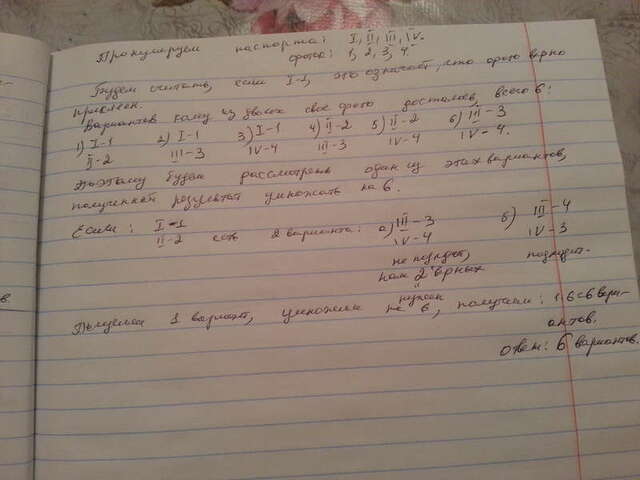 Пронумеруем паспорта: I, II, III, IV.
фото: 1, 2, 3, 4
Будем считать, если I-1, это означает, что фото верно
приклеен.
Вариантов кому из двоих свое фото досталось, всего 6:
1) I-1 2) I-1 3) I-1 4) II-2 5) II-2 6) III-3
II-2 III-3 IV-4 III-3 IV-4 IV-4.
Поэтому будем рассмотреть один из этих вариантов,
полученный результат умножать на 6.
Если: I-1
II-2 есть 2 варианта: а) III-3 б) III-4
IV-4 IV-3
не подходит, подходит.
нам 2 врных
нужно
1 вариант, умножили на 6, получили: 1·6=6 вари-
антов.
Ответ: 6 вариантов.